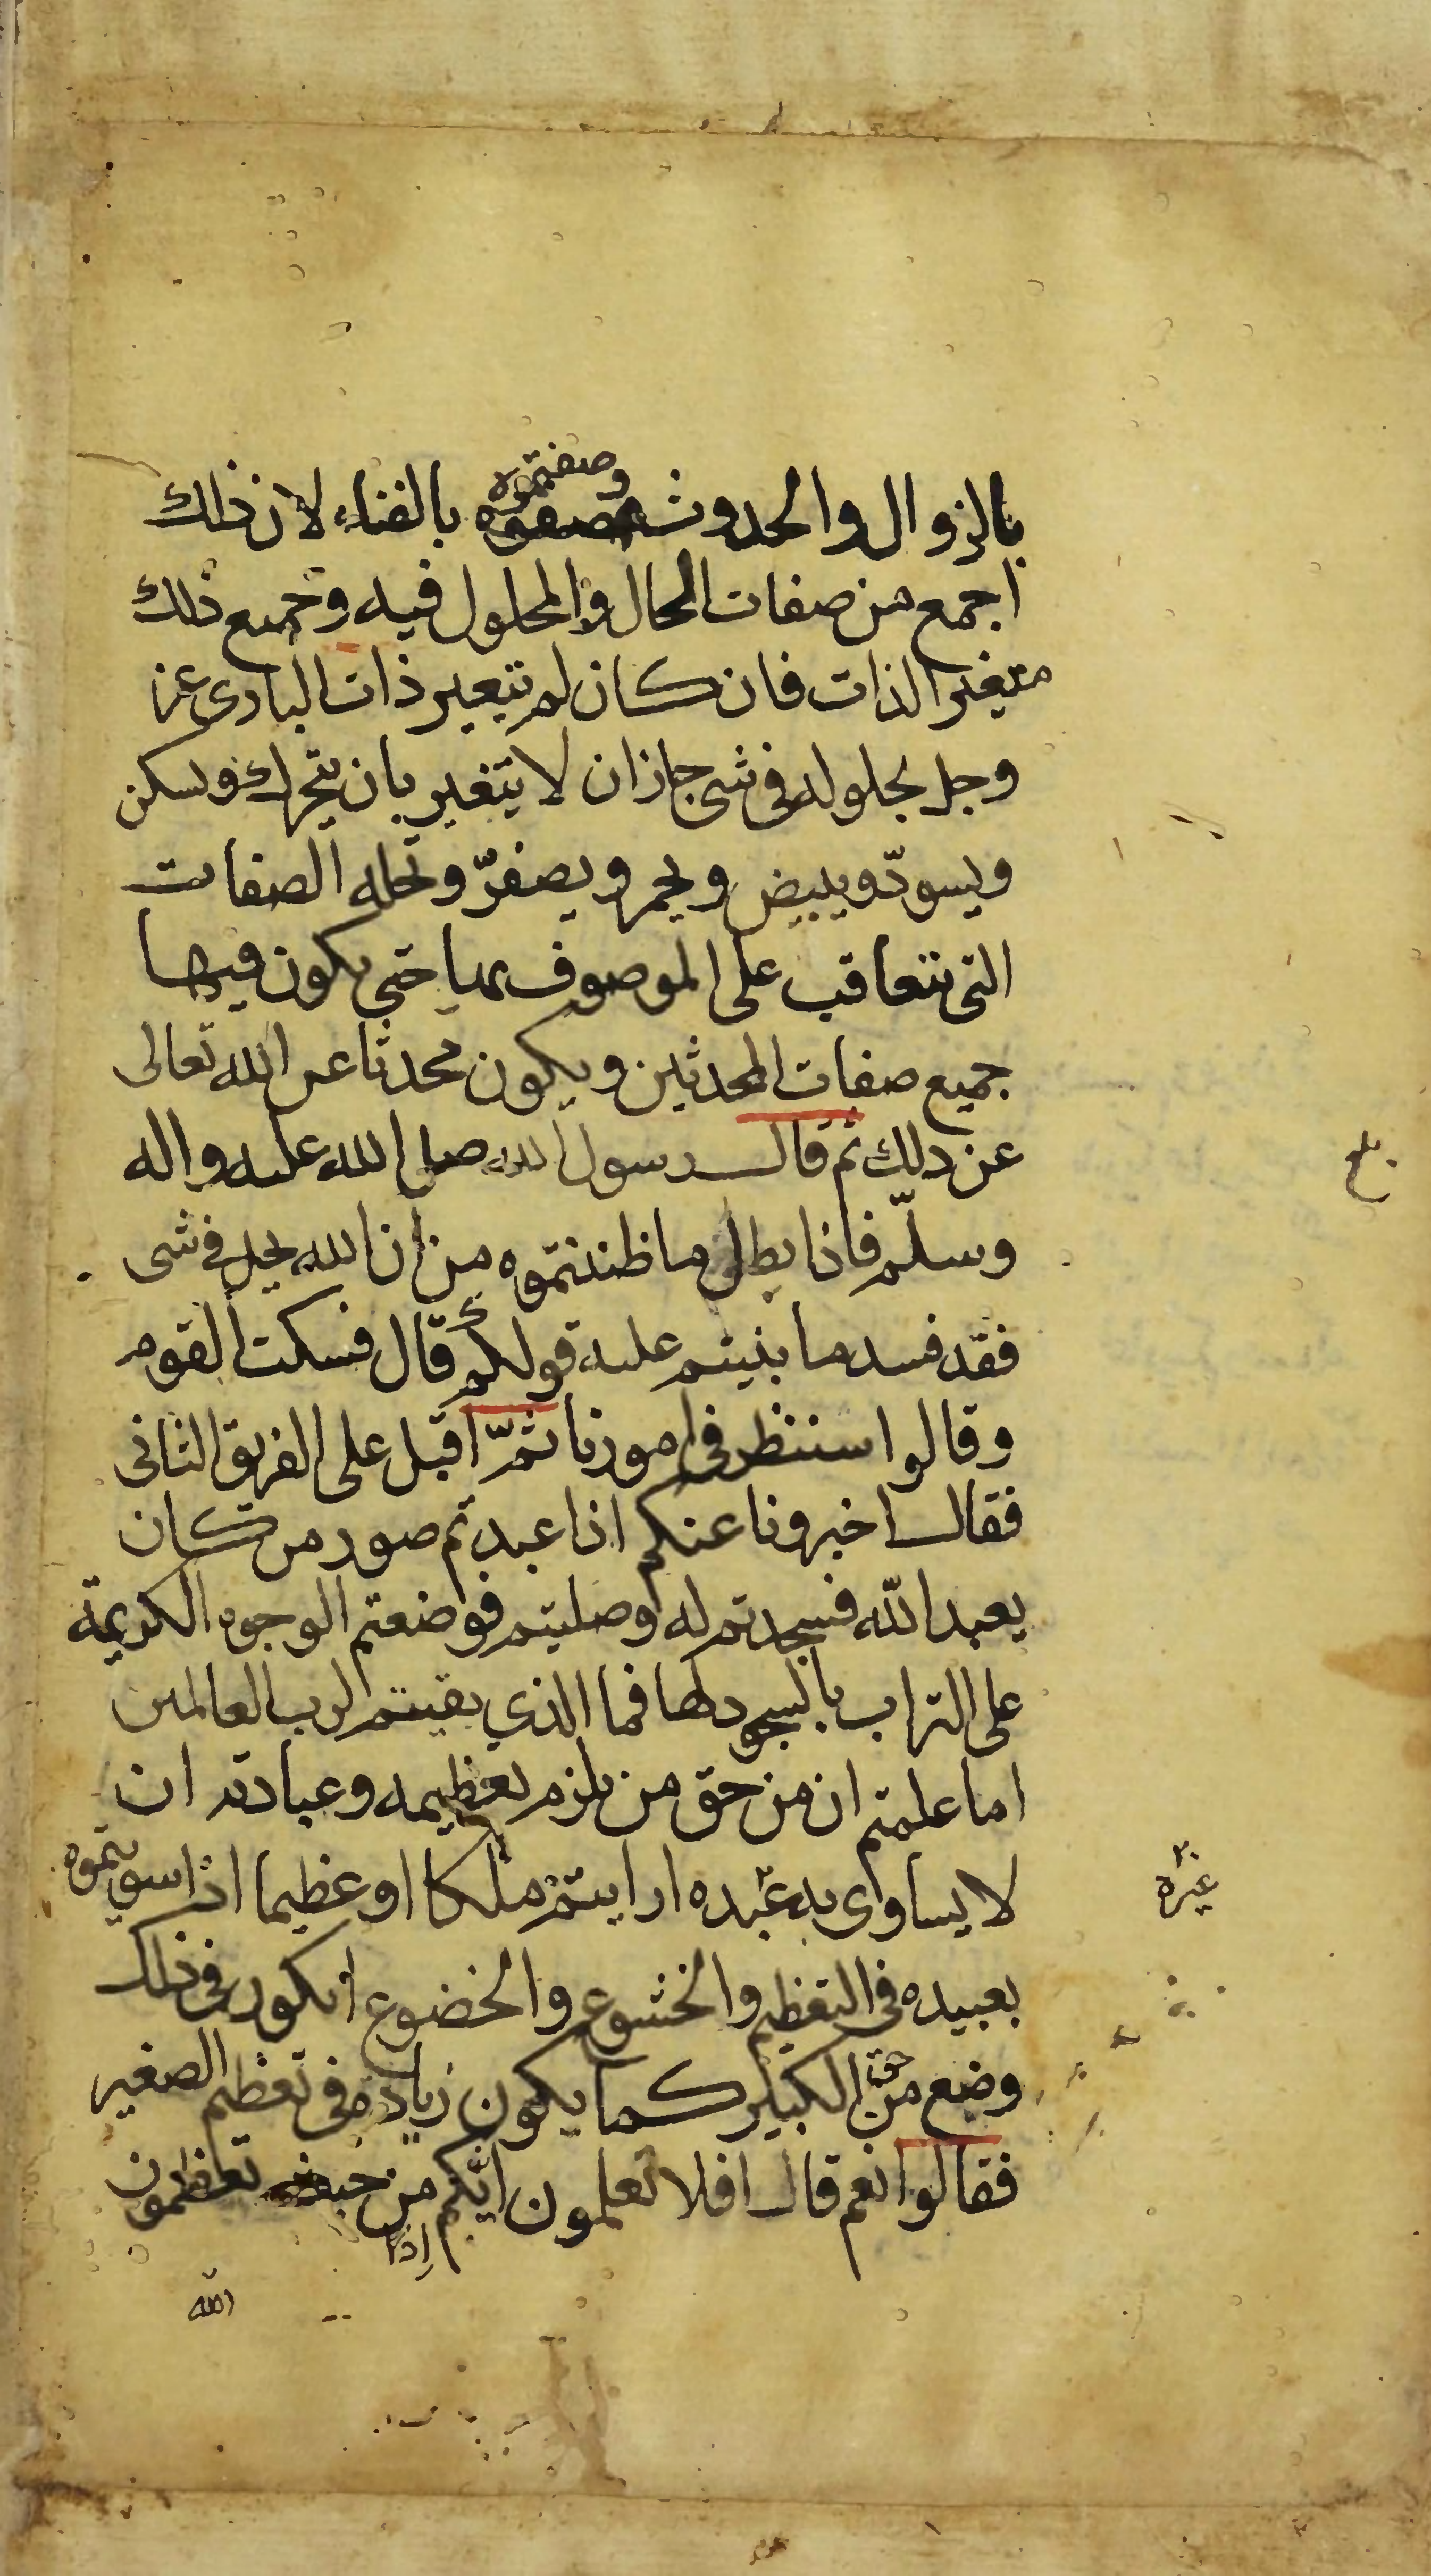 وصفتموه
بالزوال والحدوث وصفوه بالفناء لان ذلك
اجمع من صفات الحال والمحلول فيه وجميع ذلك
متغير الذات فان كان لم يتغير ذات البارى عز
وجل بحلوله فى شى جاز ان لا يتغير بان يتحرك ويسكن
ويسودّ ويبيض ويحمر ويصفرّ وتحله الصفات
التى تتعاقب على الموصوف بها حتى يكون فيها
جميع صفات المحدثين ويكون محدثا عز الله تعالى
عن ذلك ثم قال رسول الله صلى الله عليه واله
بلغ
وسلّم فاذا بطل ما ظننتموه من ان الله يحل فى شى
فقد فسد ما بنيتم عليه قولكم قال فسكت القوم
وقالوا سننظر فى امورنا ثمّ اقبل على الفريق الثانى
فقال اخبرونا عنكم اذا عبدتم صور من كان
يعبد الله فسجدتم له وصليتم فوضعتم الوجوه الكريمة
على التراب بالسجود لها فما الذي بقيتم لرب العالمين
اما علمتم ان من حق من يلزم تعظيمه وعبادته ان
لا يساوى به عبده ارايتم ملكا او عظيما اذا سويتموه
غيره
بعبيده فى التعظيم والخشوع والخضوع ايكون فى ذلك
وضع من حق الكبير كما يكون زيادة فى تعظيم الصغير
فقالوا نعم قال افلا تعلمون انكم من حيث تعظمون
اذا
الله